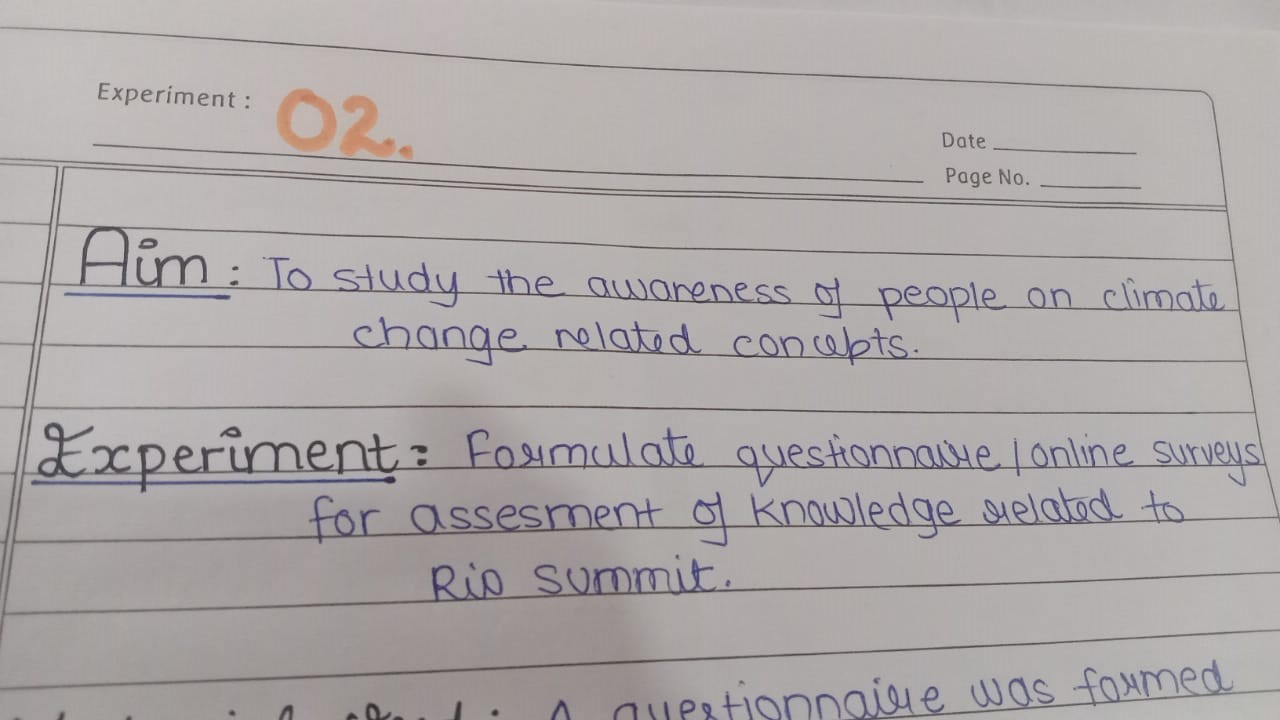 Experiment : 02.
Date
Page No.
Aim : To study the awareness of people on climate
change related concepts.
Experiment : Formulate questionnaire / online surveys
for assesment of knowledge related to
Rio summit.
: A questionnaire was formed